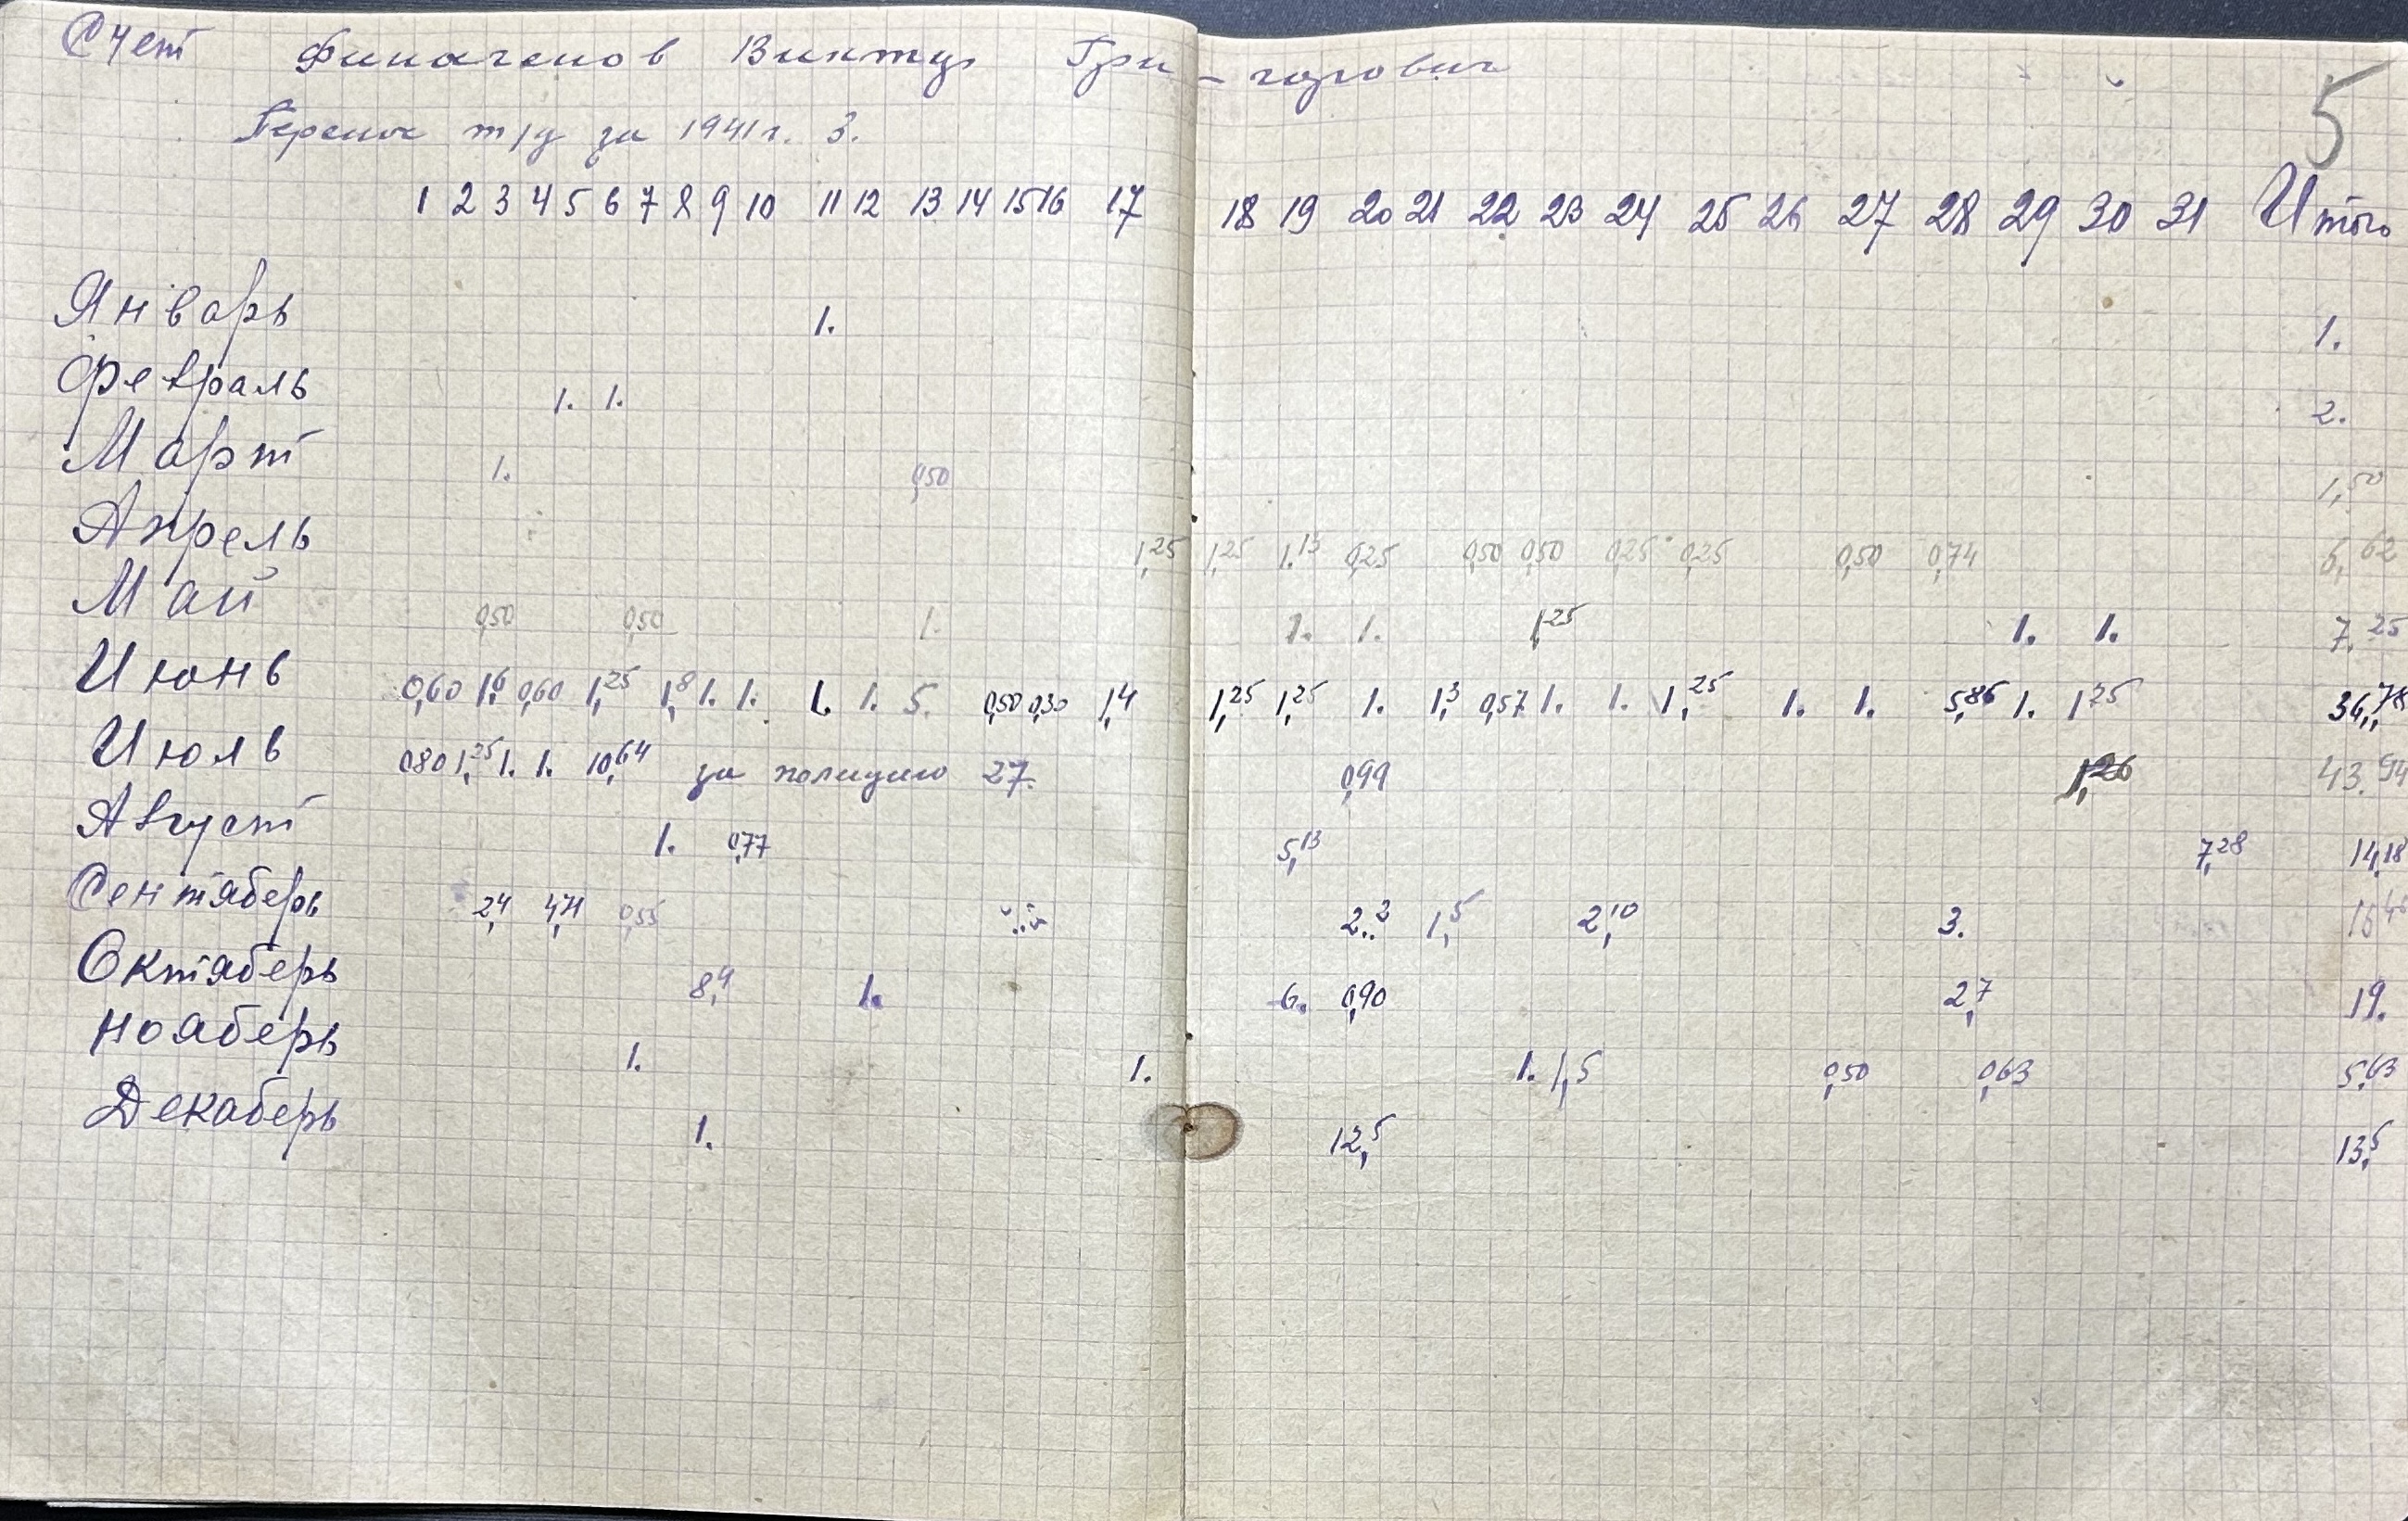 Счет Финагенов Виктур Гри-горович
5
Перенос т/д за 1941г. 3.
1 2 3 4 5 6 7 8 9 10 11 12 13 14 15 16 17 18 19 20 21 22 23 24 25 26 27 28 29 30 31 Итого
Январь 1. 1.
Февраль 1. 1. 2.
Март 1. 0,50 1,50
Апрель 1,25 1,25 1.13 0,25 0,50 0,50 0,25 0,25 0,50 0,74 6,62
Май 0,50 0,50 1. 1. 1. 1,25 1. 1. 7,25
Июнь 0,60 1,6 0,60 1,25 1,8 1. 1. 1. 1. 5. 0,50 0,30 1,4 1,25 1,25 1. 1,3 0,57 1. 1. 1,25 1. 1. 5,86 1. 1,25 36,78
Июль 080 1,25 1. 1. 10,64 за полицию 27. 0,99 1,26 43.94
Август 1. 0,77 5,13 7,28 14,18
Сентяберь 2,4 4,71 0,55 2.2 1,5 2,10 3.
Октяберь 8,4 1. 6. 0,90 2,7 19.
Нояберь 1. 1. 1. 1,5 0,50 0,63 5,63
Декаберь 1. 12,5 13,5